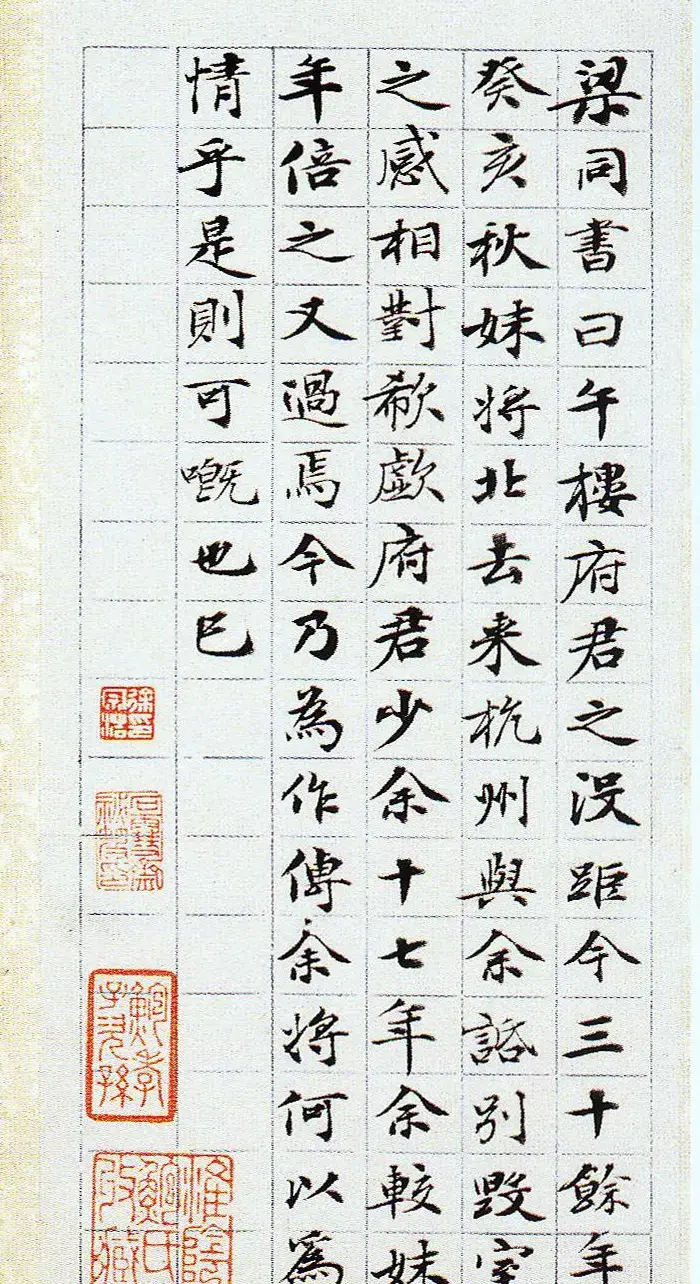 梁同書曰午樓府君之沒距今三十餘年
癸亥秋妹將北去来杭州與余話別毀室
之感相對欷歔府君少余十七年余較妹
年倍之又過焉今乃為作傳余將何以為
情乎是則可嘅也已